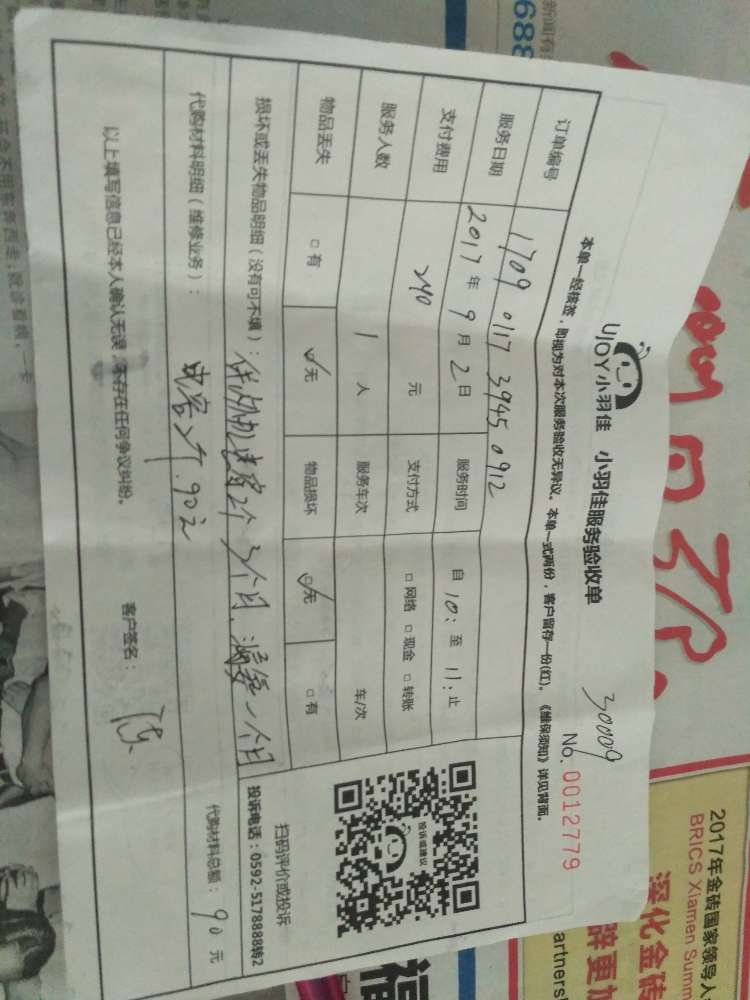 UJOY小羽佳 小羽佳服务验收单
30009
No. 0012779
本单一经核签，即视为对本次服务验收无异议。本单一式两份，客户留存一份(红)。《维保须知》详见背面。
订单编号 1709 0117 3945 0912
服务日期 2017年9月2日 服务时间 自10:至11:止
支付费用 240元 支付方式 □网络 □现金 □转账
服务人数 1人 服务车次 车/次
物品丢失 □有 □无 物品损坏 □无 □有
损坏或丢失物品明细（没有可不填）：
个月 一个月
代购材料明细（维修业务）：
电容 90元
代购材料总额：90元
以上填写信息已经本人确认无误，不存在任何争议纠纷。 客户签名：陈
投诉或建议
扫码评价或投诉
投诉电话：0592-5178888转2
688
2017年金砖国家领导人
BRICS Xiamen Summ
深化金砖
artners
福